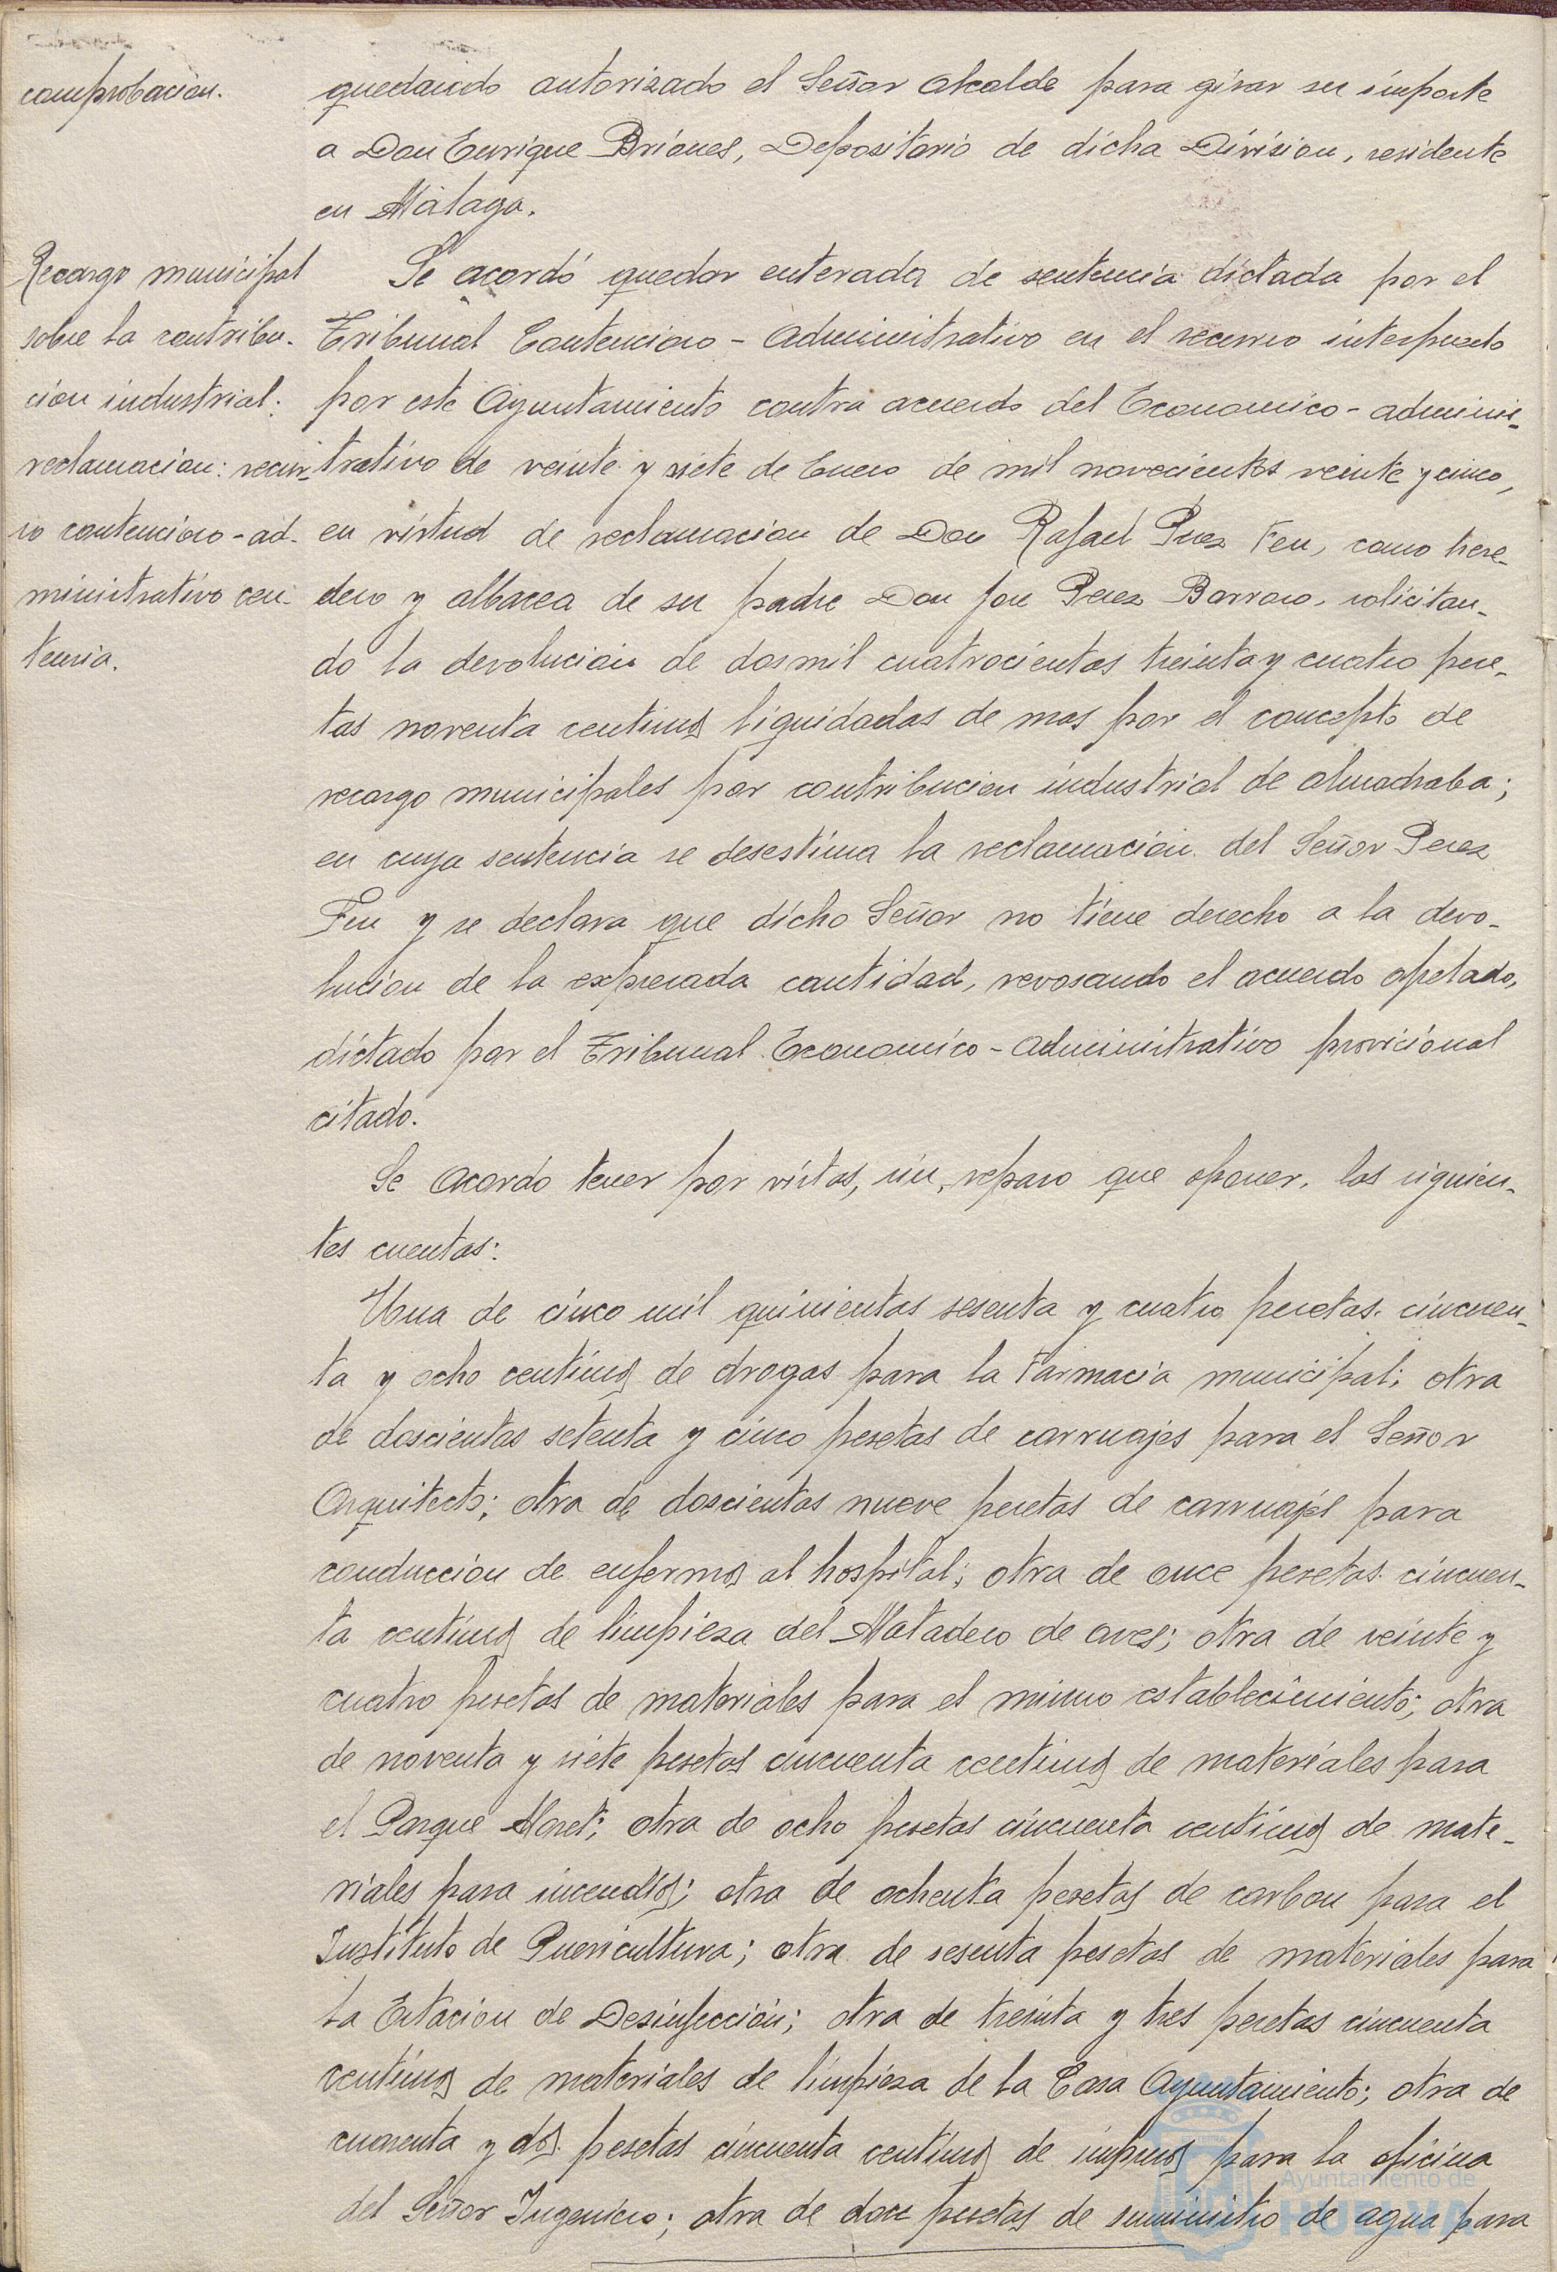 comprobacion.
quedando autorizado el Señor Alcalde para girar su importe
a Don Enrique Briones, Depositario de dicha Division, residente
en Málaga.
Recargo municipal
sobre la contribu-
cion industrial:
reclamacion: recur-
so contencioso-ad-
ministrativo sen-
tencia.
Se acordó quedar enterada de sentencia dictada por el
Tribunal Contencioso-Administrativo en el recurso interpuesto
por este Ayuntamiento contra acuerdo del Economico-adminis-
trativo de veinte y siete de Enero de mil novecientos veinte y cinco,
en virtud de reclamacion de Don Rafael Perez Feu, como here-
dero y albacea de su padre Don Jose Perez Barroso, solicitan-
do la devolucion de dos mil cuatrocientas treinta y cuatro pese-
tas noventa centimos liquidadas de mas por el concepto de
recargo municipales por contribucion industrial de almadraba;
en cuya sentencia se desestima la reclamacion del Señor Perez
Feu y se declara que dicho Señor no tiene derecho a la devo-
lucion de la expresada cantidad, revosando el acuerdo apelado,
dictado por el Tribunal Economico-Administrativo provicional
citado.
Se acordo tener por vistas, sin reparo que oponer, las siguien-
tes cuentas:
Una de cinco mil quinientas sesenta y cuatro pesetas cincuen-
ta y ocho centimos de drogas para la Farmacia municipal; otra
de doscientas setenta y cinco pesetas de carruajes para el Señor
Arquitecto; otra de doscientas nueve pesetas de carruajes para
conduccion de enfermos al hospital; otra de once pesetas cincuen-
ta centimos de limpieza del Matadero de aves; otra de veinte y
cuatro pesetas de materiales para el mismo establecimiento; otra
de noventa y siete pesetas cincuenta centimos de materiales para
el Parque Moret; otra de ocho pesetas cincuenta centimos de mate-
riales para incendios; otra de ochenta pesetas de carbon para el
Instituto de Puericultura; otra de sesenta pesetas de materiales para
la Estacion de Desinfección; otra de treinta y tres pesetas cincuenta
centimos de materiales de limpieza de la Casa Ayuntamiento; otra de
cuarenta y dos pesetas cincuenta centimos de impresos para la oficina
del Señor Ingeniero; otra de doce pesetas de suministro de agua para
Ayuntamiento de
HUELVA